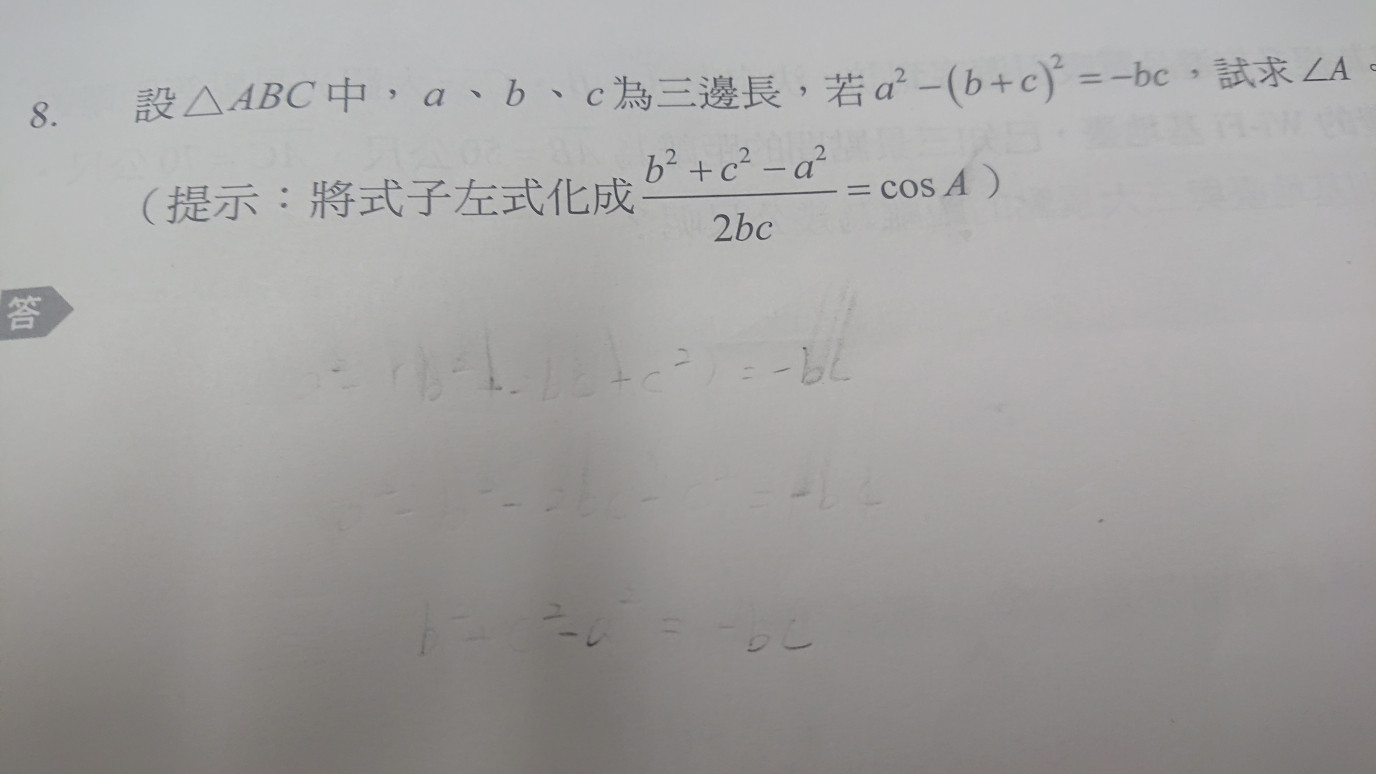 8. 設△ABC中，a、b、c為三邊長，若a²-(b+c)²=-bc，試求∠A。
（提示：將式子左式化成\frac{b²+c²-a²}{2bc}=cos A）
答
=-bc
b²+c²-a²=-bc